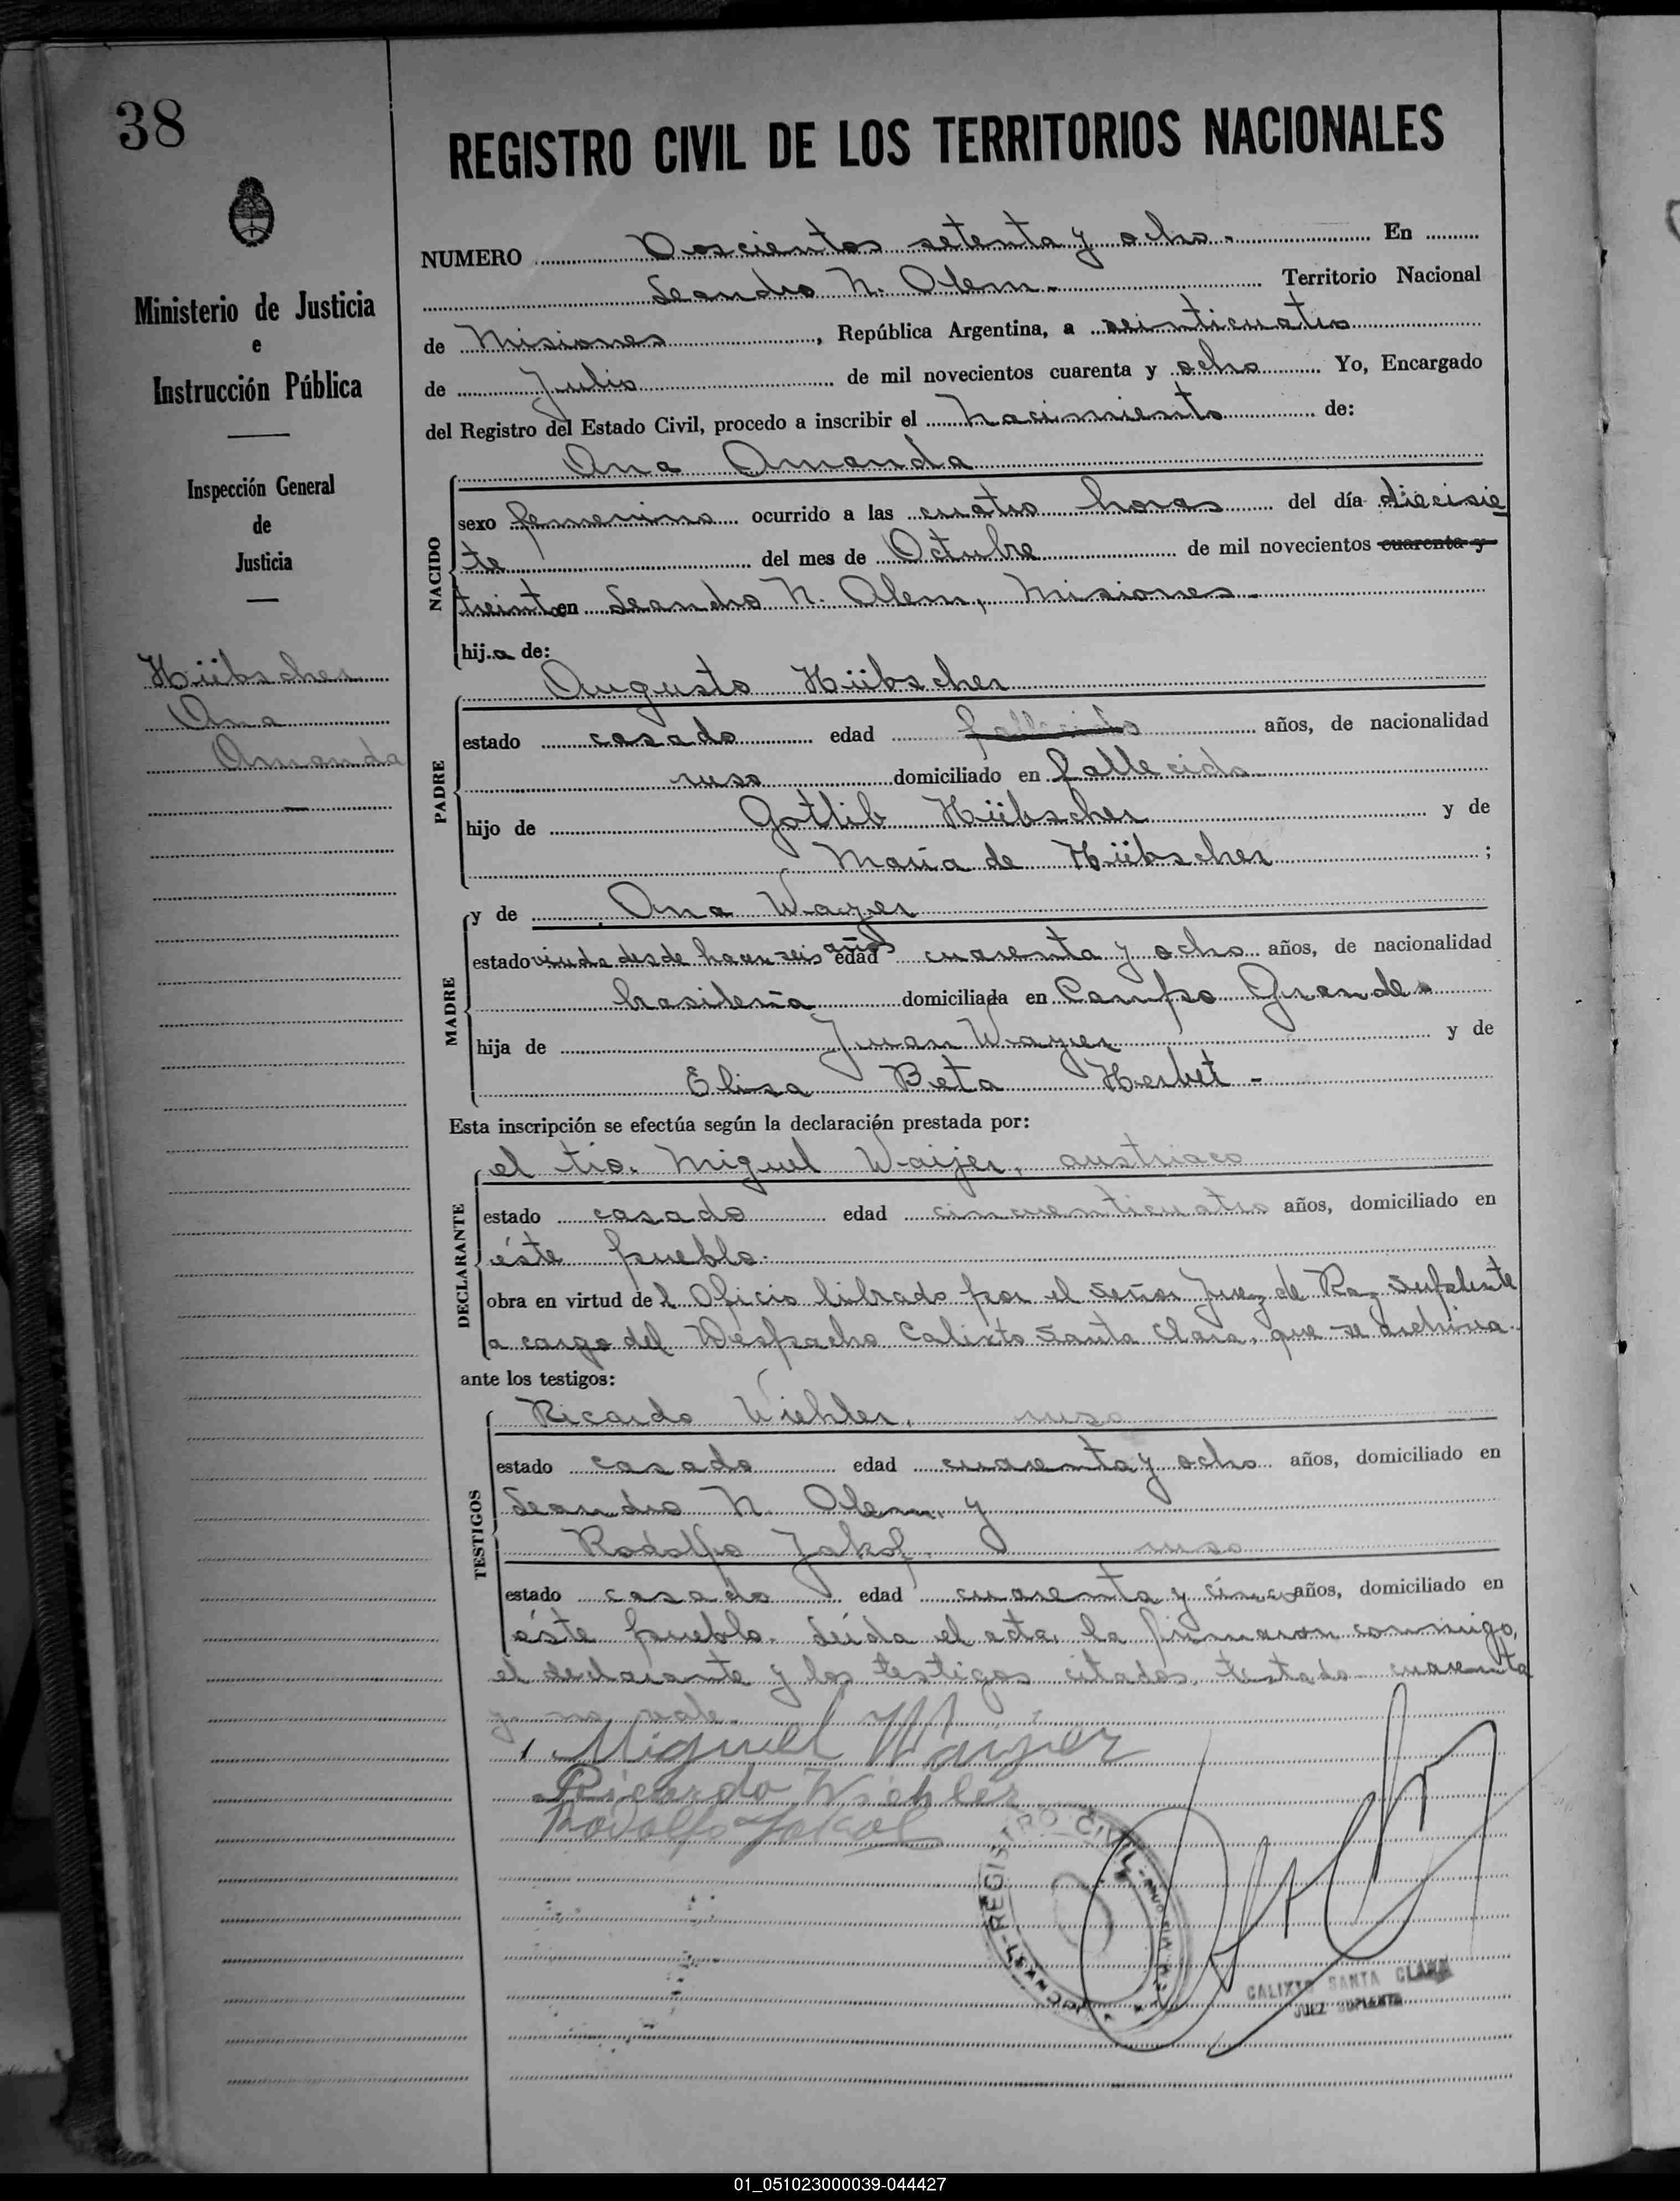 38
REGISTRO CIVIL DE LOS TERRITORIOS NACIONALES
Ministerio de Justicia
e
Instrucción Pública
Inspección General
de
Justicia
Hübscher
Ana
Amanda
NUMERO Doscientos setenta y ocho.- En
Leandro N. Alem.- Territorio Nacional
de Misiones, República Argentina, a veinticuatro
de Julio de mil novecientos cuarenta y ocho Yo, Encargado
del Registro del Estado Civil, procedo a inscribir el nacimiento de:
Ana Amanda
NACIDO
sexo femenino ocurrido a las cuatro horas del día diecisie
te del mes de Octubre de mil novecientos cuarenta y
treinta en Leandro N. Alem, Misiones.-
hija de:
PADRE
Augusto Hübscher
estado casado edad fallecido años, de nacionalidad
ruso domiciliado en fallecido
hijo de Gotlib Hübscher y de
María de Hübscher ;
MADRE
y de Ana Wayer
estado viuda desde hacen seis años edad cuarenta y ocho años, de nacionalidad
brasileña domiciliada en Campo Grande.
hija de Juan Wayer y de
Elisa Beta Herbet -
Esta inscripción se efectúa según la declaración prestada por:
DECLARANTE
el tio. Miguel Waijer, austriaco
estado casado edad cincuenticuatro años, domiciliado en
éste pueblo.
obra en virtud del Oficio librado por el Señor Juez de Paz Suplente
a cargo del Despacho Calixto Santa Clara, que se archiva.
ante los testigos:
TESTIGOS
Ricardo Wiehler, ruso
estado casado edad cuarenta y ocho años, domiciliado en
Leandro N. Alem, y
Rodolfo Jakob, ruso
estado casado edad cuarenta y cinco años, domiciliado en
éste pueblo. Leída el acta, la firmaron conmigo,
el declarante y los testigos citados. testado cuarenta
y no vale.
Miguel Waijer
Ricardo Wiehler
Rodolfo Jakob
REGISTRO CIVIL
CALIXTO SANTA CLARA
JUEZ SUPLENTE
01_051023000039-044427